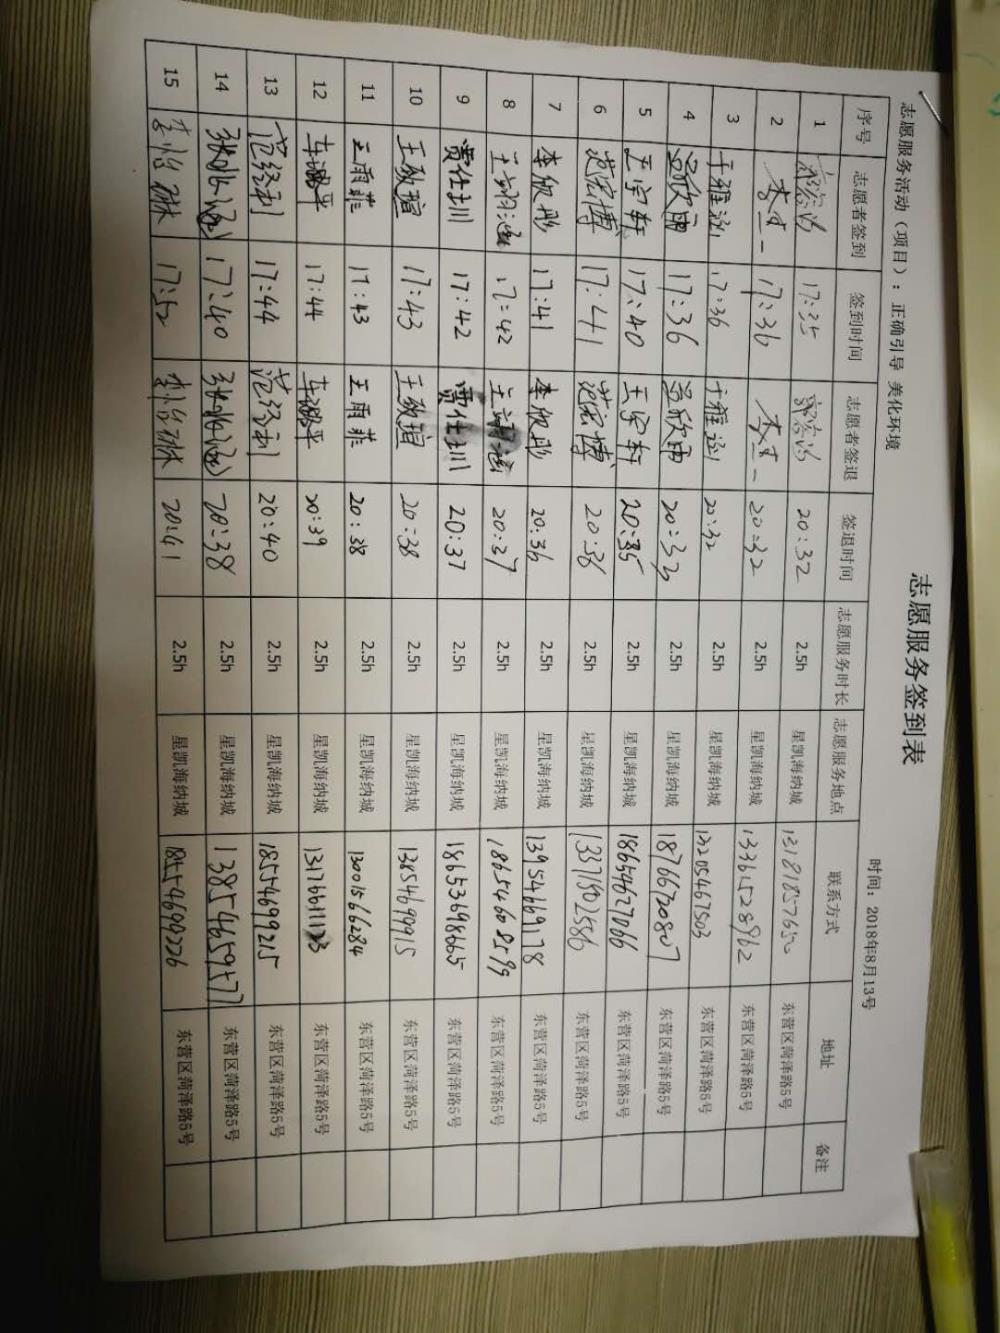 志愿服务签到表
志愿服务活动（项目）：正确引导 美化环境 时间：2018年8月13号
序号 志愿者签到 签到时间 志愿者签退 签退时间 志愿服务时长 志愿服务地点 联系方式 地址 备注
1 17:35 20:32 2.5h 星凯海纳城 东营区菏泽路5号
2 17:36 20:32 2.5h 星凯海纳城 13361528962 东营区菏泽路5号
3 于雅涵 17:36 于雅涵 20:32 2.5h 星凯海纳城 13205467503 东营区菏泽路5号
4 17:36 20:33 2.5h 星凯海纳城 18766720807 东营区菏泽路5号
5 王宇轩 17:40 王宇轩 20:35 2.5h 星凯海纳城 18654627066 东营区菏泽路5号
6 范宏博 17:41 范宏博 20:36 2.5h 星凯海纳城 13371502586 东营区菏泽路5号
7 李欣彤 17:41 李欣彤 20:36 2.5h 星凯海纳城 13954669178 东营区菏泽路5号
8 17:42 20:37 2.5h 星凯海纳城 18654608599 东营区菏泽路5号
9 贾仕圳 17:42 贾仕圳 20:37 2.5h 星凯海纳城 18653698665 东营区菏泽路5号
10 王敬瑄 17:43 王敬瑄 20:38 2.5h 星凯海纳城 13854699915 东营区菏泽路5号
11 王雨菲 17:43 王雨菲 20:38 2.5h 星凯海纳城 13001566284 东营区菏泽路5号
12 车璐平 17:44 车璐平 20:39 2.5h 星凯海纳城 13176611123 东营区菏泽路5号
13 17:44 20:40 2.5h 星凯海纳城 18554699215 东营区菏泽路5号
14 17:40 20:38 2.5h 星凯海纳城 13854659577 东营区菏泽路5号
15 李怡霖 17:52 李怡霖 20:41 2.5h 星凯海纳城 18554699226 东营区菏泽路5号